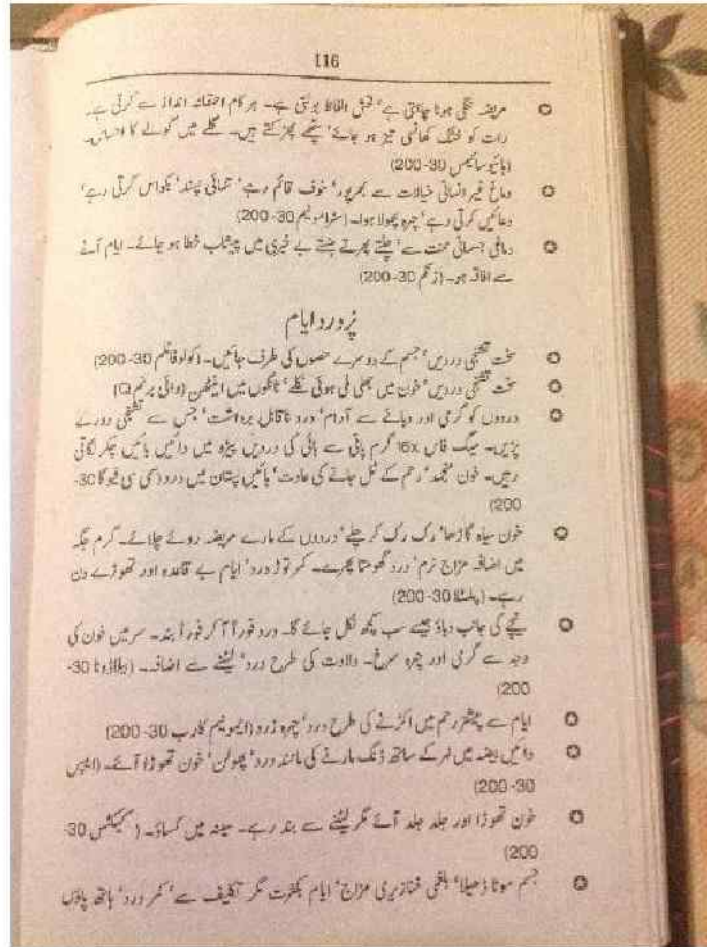 116
مریضہ ننگی ہونا چاہتی ہے' فحش الفاظ بولتی ہے۔ ہر کام احمقانہ انداز سے کرتی ہے۔
رات کو خشک کھانسی تیز ہو جائے' پٹھے پھڑکتے ہیں۔ گلے میں گولے کا احساس۔
(ہائیوسائیمس 30-200)
دماغ غیر انسانی خیالات سے بھرپور' خوف قائم رہے' تنہائی پسند' بکواس کرتی رہے'
دعائیں کرتی رہے' چہرہ پھولا ہوا۔ (سٹرامونیم 30-200)
دماغی جسمانی محنت سے' چلتے پھرتے ہنستے بے خبری میں پیشاب خطا ہو جائے۔ ایام آنے
سے افاقہ ہو۔ (زنکم 30-200)
پُر درد ایام
سخت تشنجی دردیں' جسم کے دوسرے حصوں کی طرف جائیں۔ (کولوفائلم 30-200)
سخت تشنجی دردیں' خون میں بھی ملی ہوئی نکلے' ٹانگوں میں اینٹھن (وائی برنم Q)
دردوں کو گرمی اور دبانے سے آرام' درد ناقابل برداشت' جس سے تشنجی دورے
پڑیں۔ میگ فاس 16x گرم پانی سے بائی کی دردیں پیڑہ میں دائیں بائیں چکر لگاتی
رہیں۔ خون منجمد' رحم کے ٹل جانے کی عادت' بائیں پستان میں درد (سی سی فیوگا 30-
200)
خون سیاہ گاڑھا' رک رک کر چلے' دردوں کے مارے مریضہ روئے چلائے۔ گرم جگہ
میں اضافہ مزاج نرم' درد گھومتا پھرے۔ کمر توڑ درد' ایام بے قاعدہ اور تھوڑے دن
رہے۔ (پلسٹلا 30-200)
نیچے کی جانب دباؤ جیسے سب کچھ نکل جائے گا۔ درد فوراً آ کر فوراً بند۔ سر میں خون کی
وجہ سے گرمی اور چہرہ سرخ۔ ولادت کی طرح درد' لیٹنے سے اضافہ۔ (بیلاڈونا 30-
200)
ایام سے پیشتر رحم میں اکڑنے کی طرح درد' چہرہ زرد (ایمونیم کارب 30-200)
دائیں بیضہ میں لہر کے ساتھ ڈنک مارنے کی مانند درد' پھولن' خون تھوڑا آئے۔ (ایپس
30-200)
خون تھوڑا اور جلد جلد آئے مگر لیٹنے سے بند رہے۔ سینہ میں کساؤ۔ (کیکٹس 30-
200)
جسم موٹا ڈھیلا' بلغمی خنازیری مزاج' ایام بکثرت مگر تکلیف سے' کمر درد' ہاتھ پاؤں